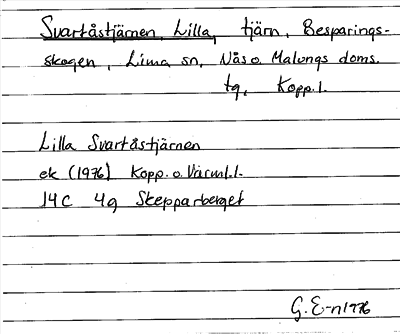 Svartåstjärnen, Lilla, tjärn, Besparings-
skogen, Lima sn, Nås o. Malungs doms.
tg, Kopp.l.
Lilla Svartåstjärnen
ek (1976) Kopp. o. Värml.l.
14C 4g Skepparberget
G. E-n 1976